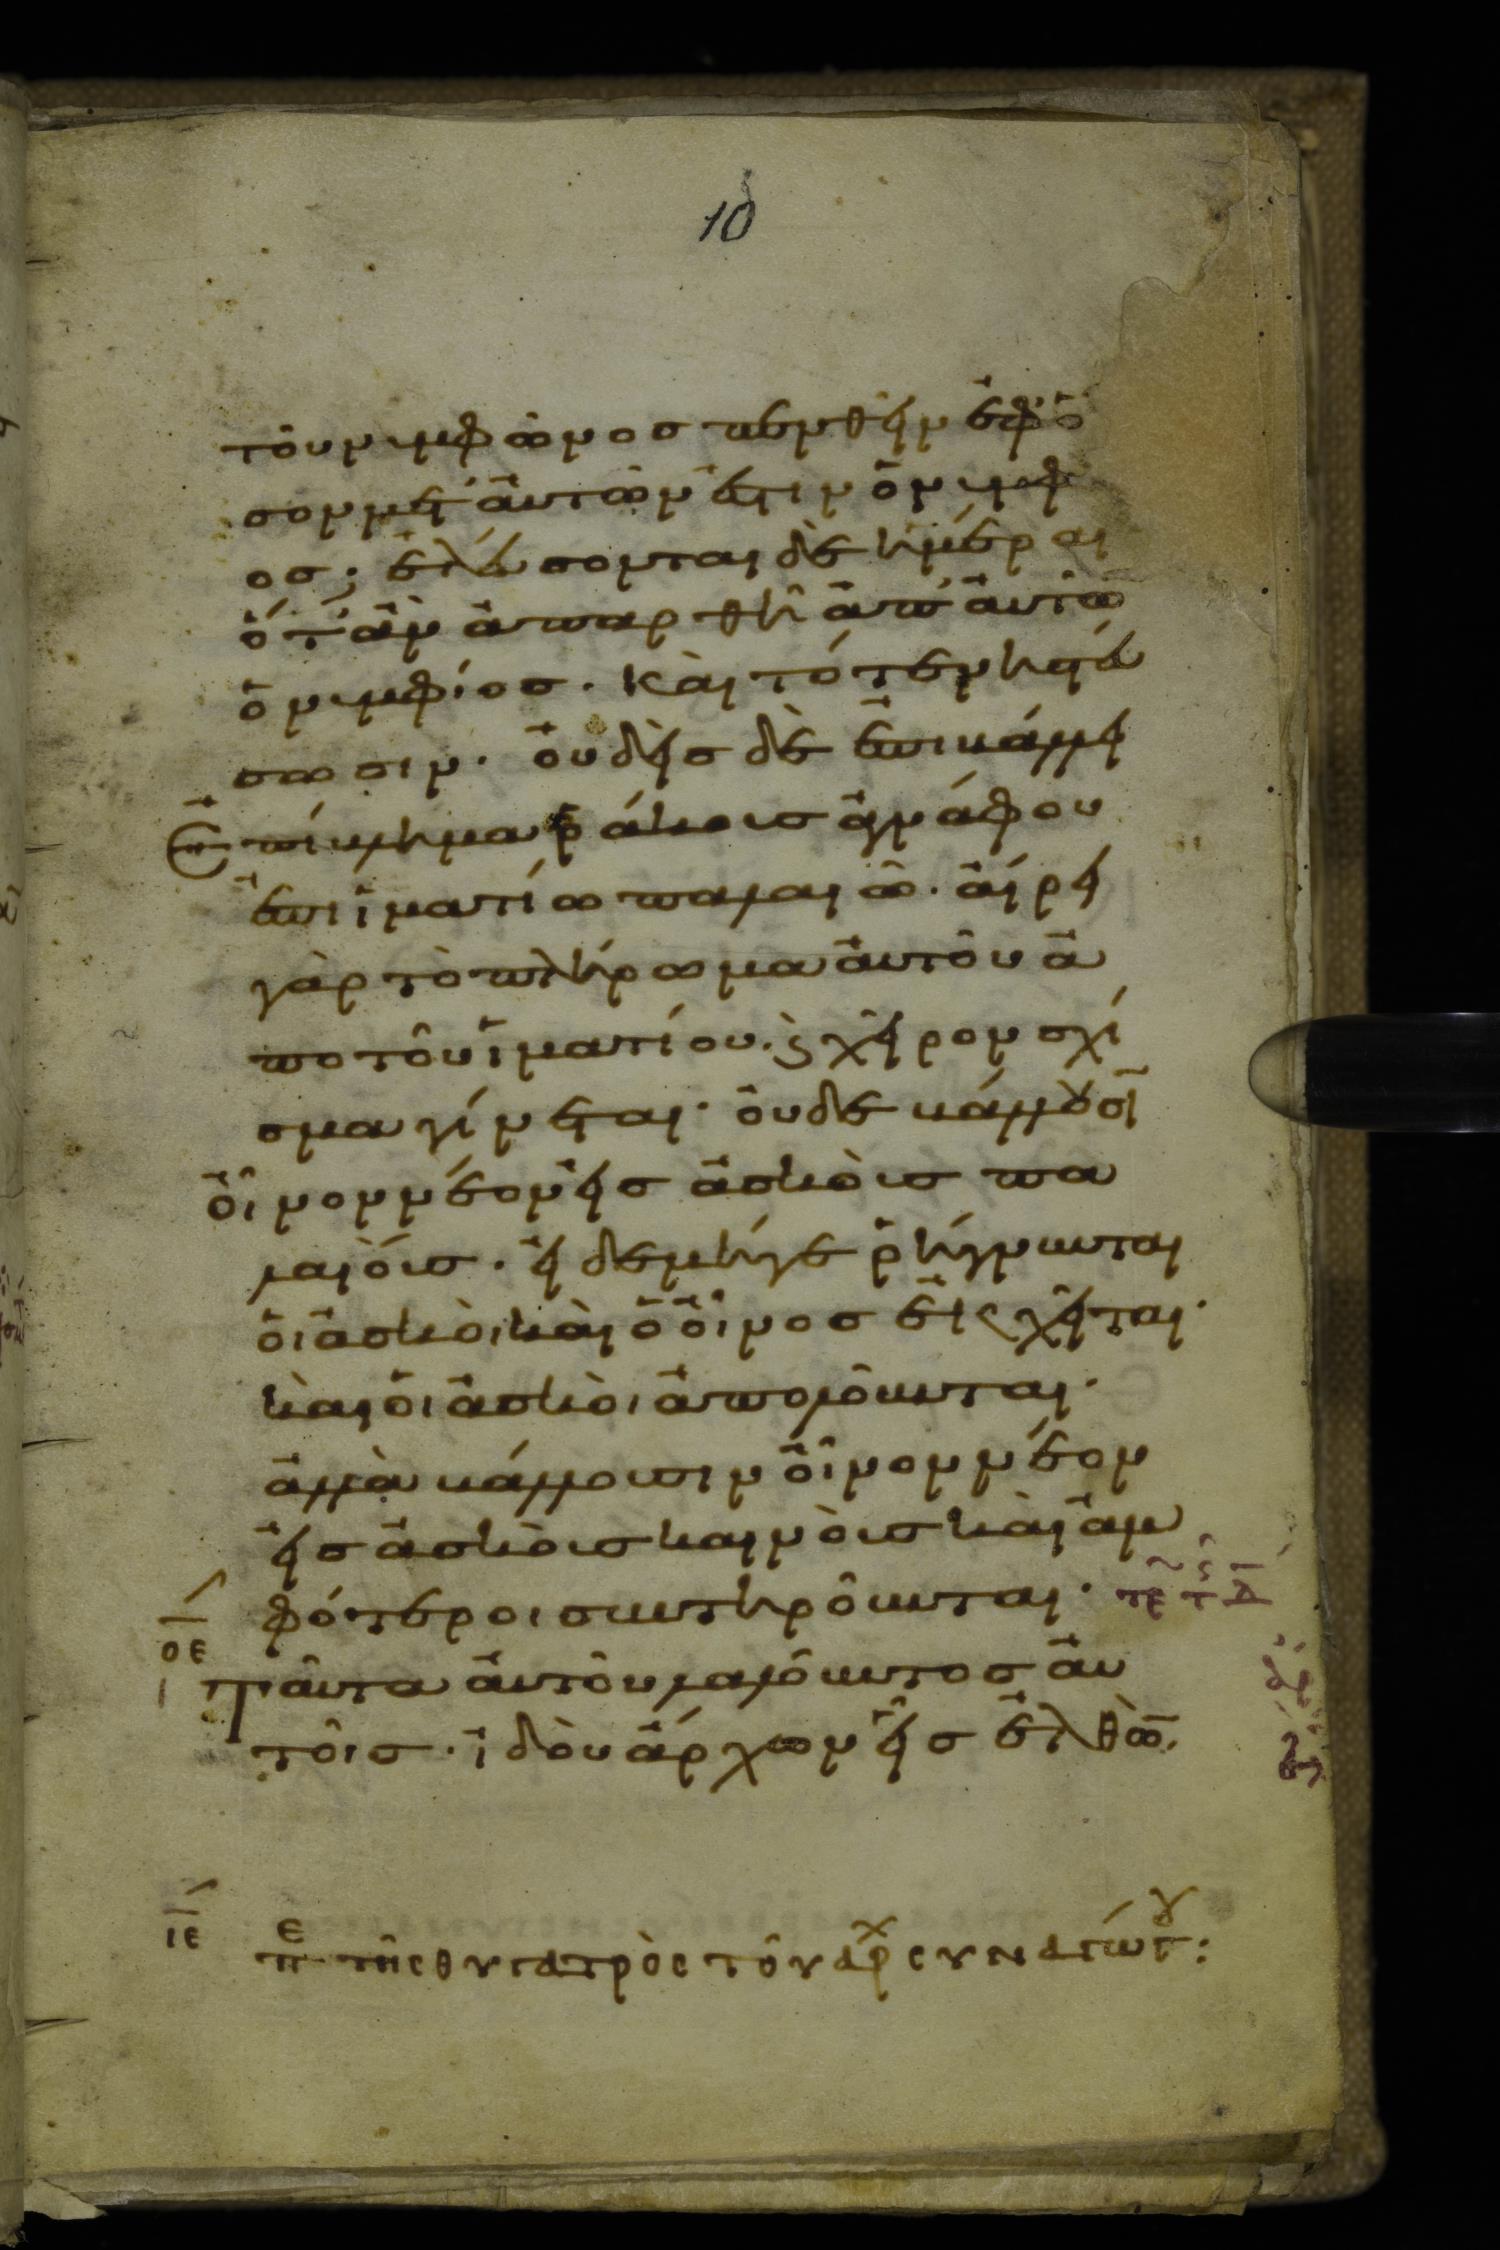 10
τοῦ νυμφῶνος πενθεῖν ἐφ' ὅ
σον μετ' αὐτῶν ἐστιν ὁ νυμφι
ος; ἐλεύσονται δὲ ἡμέραι
ὅτ' ἂν ἀπαρθῆ ἀπ' αὐτῶ
ὁ νυμφίος. καὶ τότε νηστεύ
σωσιν. οὐδεὶς δὲ ἐπιβάλλει
ἐπίβλημα ῥάκους ἀγνάφου
ἐπὶ ἱματίω παλαιῶ. αἴρει
γὰρ τὸ πλήρωμα αὐτοῦ ἀ
πο τοῦ ἱματίου. ϗ χεῖρον σχί
σμα γίνεται. οὐδὲ βάλλουσι
οἶνον νέον εἰς ἀσκοὺς πα
λαιούς. εἰ δὲ μήγε ῥήγνυνται
οἱ ἀσκοὶ καὶ ὁ οἶνος ἐκχεῖται.
καὶ οἱ ἀσκοὶ ἀπολοῦνται.
ἀλλὰ βάλλουσιν οἶνον νέον
εἰς ἀσκοὺς καινοὺς καὶ ἀμ
φότεροι συντηροῦνται.
οε ταῦτα αὐτοῦ λαλοῦντος αὐ
τοῖς. ἰδοὺ ἄρχων εἷς ἐλθὼ
ιε πε τῆς θυγατρὸς τοῦ ἀρχ συναγώγου: